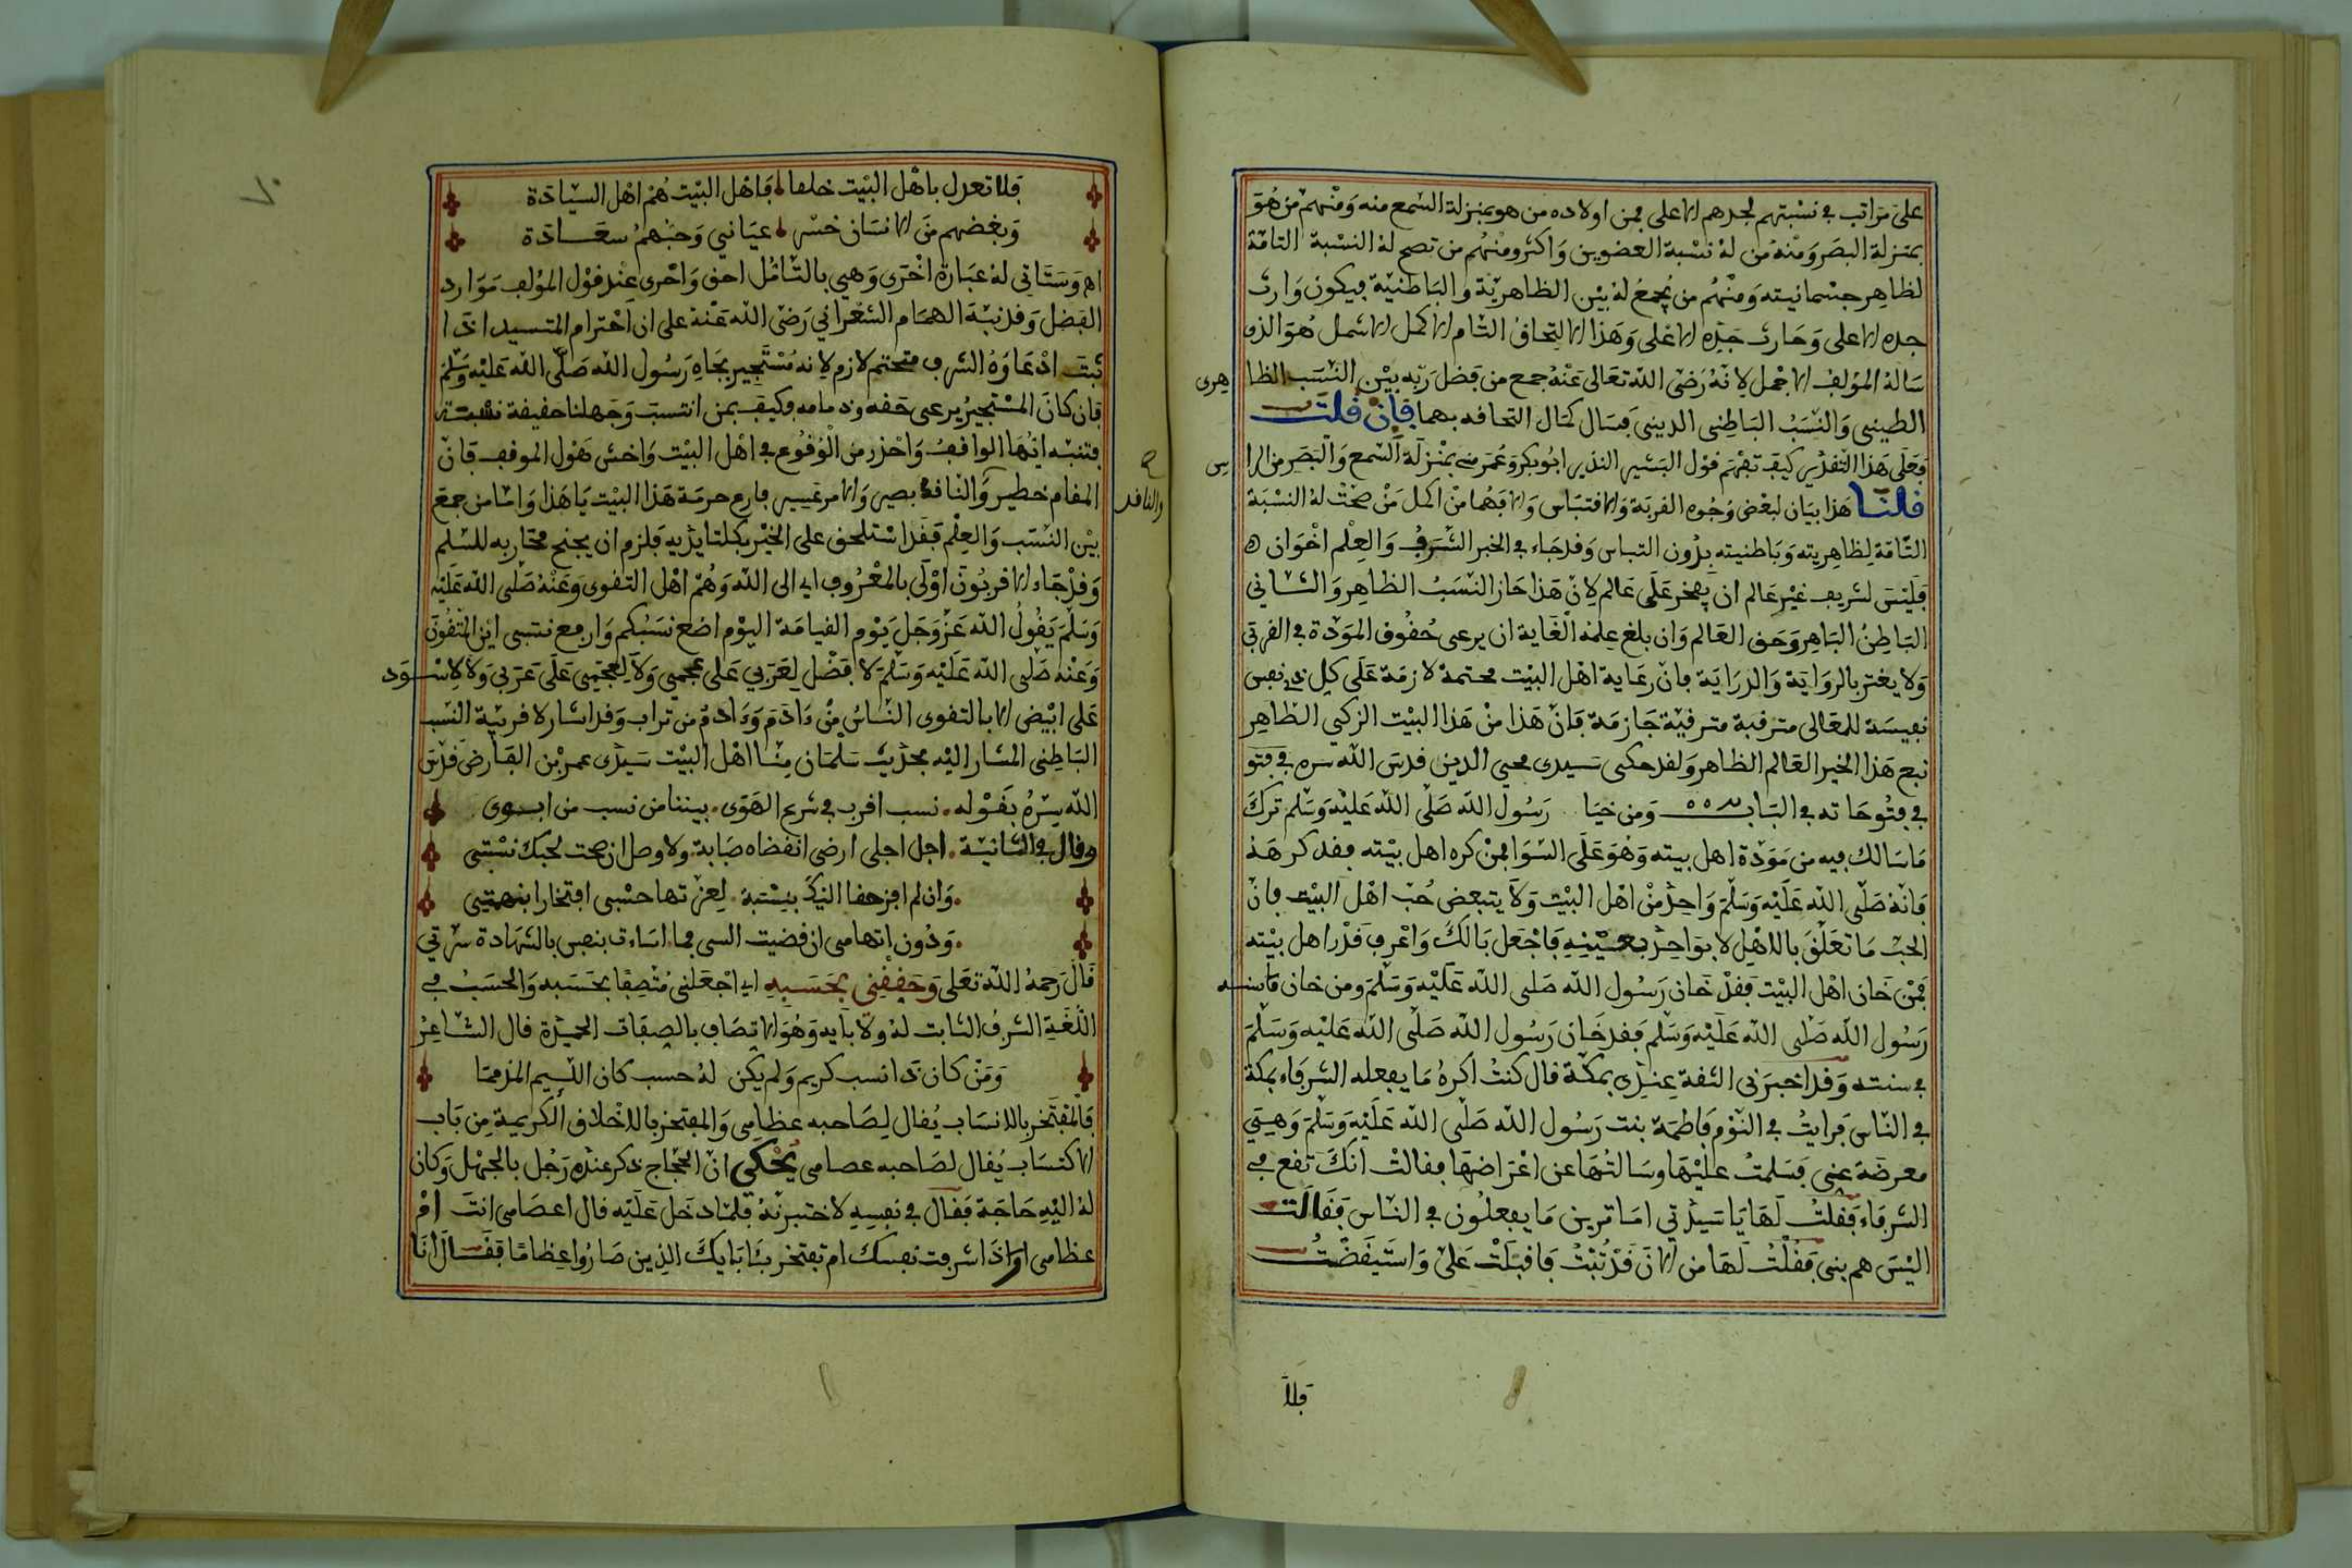 على مراتب في نسبتهم لجدهم الاعلى فمن اولاده من هو بمنزلة السمع منه ومنهم من هو
بمنزلة البصر ومنه من له نسبة العضوين واكثر ومنهم من تصح له النسبة التامة
لظاهر جسمانيته ومنهم من يجمع له بين الظاهرية والباطنية فيكون وارث
جده الاعلى وحارث جده الاعلى وهذا الالتحاق التام الاكمل الاشمل هو الذي
ساله المؤلف الاجمل لانه رضى الله تعالى عنه جمع من فضل ربه بين النسب الظا هرى
الطينى والنسب الباطنى الدينى فسال كمال التحافه بهما فإن قلت
فعلى هذا التقدير كيف تفهم قول البشير النذير ابو بكر وعمر مني بمنزلة السمع والبصر من الرا س
قلنا هذا بيان لبعض وجوه القربة والاقتباس والا فهما من اكمل من صحت له النسبة
التامة لظاهريته وباطنيته بدون التباس وقد جاء في الخبر الشرف والعلم اخوان ه
فليس لشريف غير عالم ان يفخر على عالم لان هذا حاز النسب الظاهر والثاني
الباطن الباهر وحق العالم وان بلغ علمه الغاية ان يرعى حقوق المودة في القربى
ولا يغتر بالرواية والدراية فان رعاية اهل البيت محتمة لازمة على كل ذي نفس
نفيسة للمعالى مترقبة مترقية جازمة فان هذا من هذا البيت الزكي الظاهر
نبع هذا الخير العالم الظاهر ولقد حكى سيدى محيي الدين قدس الله سره في فتو
في فتوحاته في الباب ٥٥ ومن خيا رسول الله صلى الله عليه وسلم ترك
ما سالك فيه من مودة اهل بيته وهو على السوا فمن كره اهل بيته فقد كرهه
فانه صلى الله عليه وسلم واحد من اهل البيت ولا يتبعض حب اهل البيت فان
الحب ما تعلق بالاهل لا بواحد بعينه فاجعل بالك واعرف قدر اهل بيته
فمن خان اهل البيت فقد خان رسول الله صلى الله عليه وسلم ومن خان ما سنه
رسول الله صلى الله عليه وسلم فقد خان رسول الله صلى الله عليه وسلم
في سنته وقد اخبرنى الثقة عندى بمكة قال كنت اكره ما يفعله الشرفاء بمكة
في الناس فرايت في النوم فاطمة بنت رسول الله صلى الله عليه وسلم وهي
معرضة عنى فسلمت عليها وسالتها عن اعراضها فقالت انك تقع في
الشرفاء فقلت لها يا سيدتي اما ترين ما يفعلون في الناس فقالت
اليس هم بنى فقلت لها من الان قد تبت فاقبلت على واستيقضت
فلا
فلا تعدل باهل البيت خلقا فاهل البيت هم اهل السيادة
وبغضهم من الانسان خسر عيانى وحبهم سعادة
اه وستاتى له عبارة اخرى وهي بالتامل احق واحرى عند قول المؤلف موارد
الفضل وقد نبه الهمام الشعراني رضى الله عنه على ان احترام المتسيد اذا
ثبت ادعاوه الشرف متحتم لازم لانه مستجير بجاه رسول الله صلى الله عليه وسلم
فان كان المستجير يرعى حقه وذمامه فكيف بمن انتسب وجهلنا حقيقة نسبته
فتنبه ايها الواقف واحذر من الوقوع في اهل البيت واخش هول الموقف فان
المقام خطير والناقد بصير والامر عسير فارع حرمة هذا البيت يا هذا واما من جمع
ح والناقد
بين النسب والعلم فقد استلحق على الخير بكلتا يديه فلزم ان يجنح محاربه للسلم
وقد جاء الاقربون اولى بالمعروف اي الى الله وهم اهل التقوى وعنه صلى الله عليه
وسلم يقول الله عز وجل يوم القيامة اليوم اضع نسبكم وارفع نسبى اين المتقون
وعنه صلى الله عليه وسلم لا فضل لعربي على عجمي ولا لعجمي على عربى ولا لاسود
على ابيض الا بالتقوى الناس من ءادم وءادم من تراب وقد اشار لاقربية النسب
الباطنى المشار اليه بحديث سلمان منا اهل البيت سيدى عمر بن الفارض قدس
الله سره بقوله نسب اقرب في شرع الهوى بيننا من نسب من ابوى
وقال في التائية اجل اجلى ارضى انقضاه صبابة ولا وصل ان صحت لحبك نسبتى
وان لم افز حقا اليك بنسبة لعزتها حسبى افتخارا بتهمتى
ودون اتهامى ان قضيت اسى فما اساءت بنفس بالشهادة سرتي
قال رحمه الله تعلى وحققني بحسبه اي اجعلنى متصفا بحسبه والحسب في
اللغة الشرف الثابت له ولآبايه وهو الاتصاف بالصفات الحميدة قال الشاعر
ومن كان ذا نسب كريم ولم يكن له حسب كان اللئيم المذمما
فالمفتخر بالانساب يقال لصاحبه عظامى والمفتخر بالاخلاق الكريمة من باب
الاكتساب يقال لصاحبه عصامى يحكى ان الحجاج ذكر عنده رجل بالجهل وكان
له اليه حاجة فقال في نفسه لاختبرنه فلما دخل عليه قال اعصامى انت ام
عظامى اي اذا شرفت نفسك ام تفتخر بئابايك الذين صاروا عظاما فقال انا
٧٠